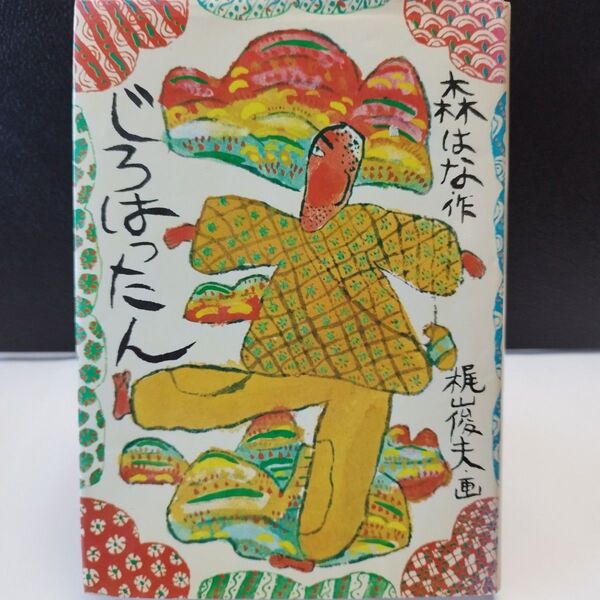 じろはったん
森はな・作
梶山俊夫・画